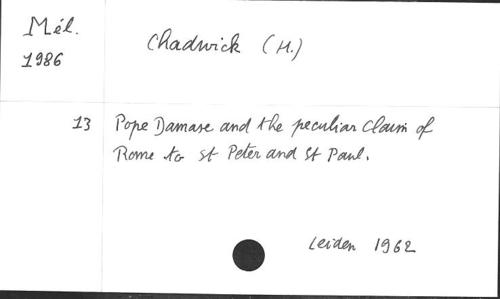 Mél.
1986
Chadwick (H.)
13 Pope Damase and the peculiar claim of
Rome to St Peter and St Paul.
Leiden 1962